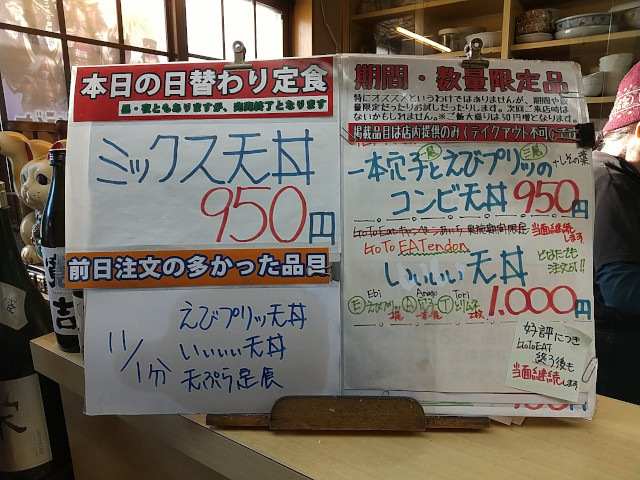 本日の日替わり定食
昼・夜ともありますが、完売終了となります
ミックス天丼
950円
前日注文の多かった品目
11/1分
えびプリッ天丼
いいいい天丼
天ぷら定食
期間・数量限定品
特にオススメというわけではありませんが、期間や数
量限定だったりお試しだったりします。次回ご来店時は
ないかもしれません。※ご飯大盛りは50円増となります。
掲載品目は店内提供のみ(テイクアウト不可)
一本穴子とえびプリッの
+しその葉
コンビ天丼 950円
GoToEatキャンペーンあいち
当面継続します
GoTo EATendon
どなたでも
注文可!!
いいいい天丼
1,000円
Ebi
Anago
Tori
E
A
T
好評につき
GoToEAT
終了後も
当面継続します
円